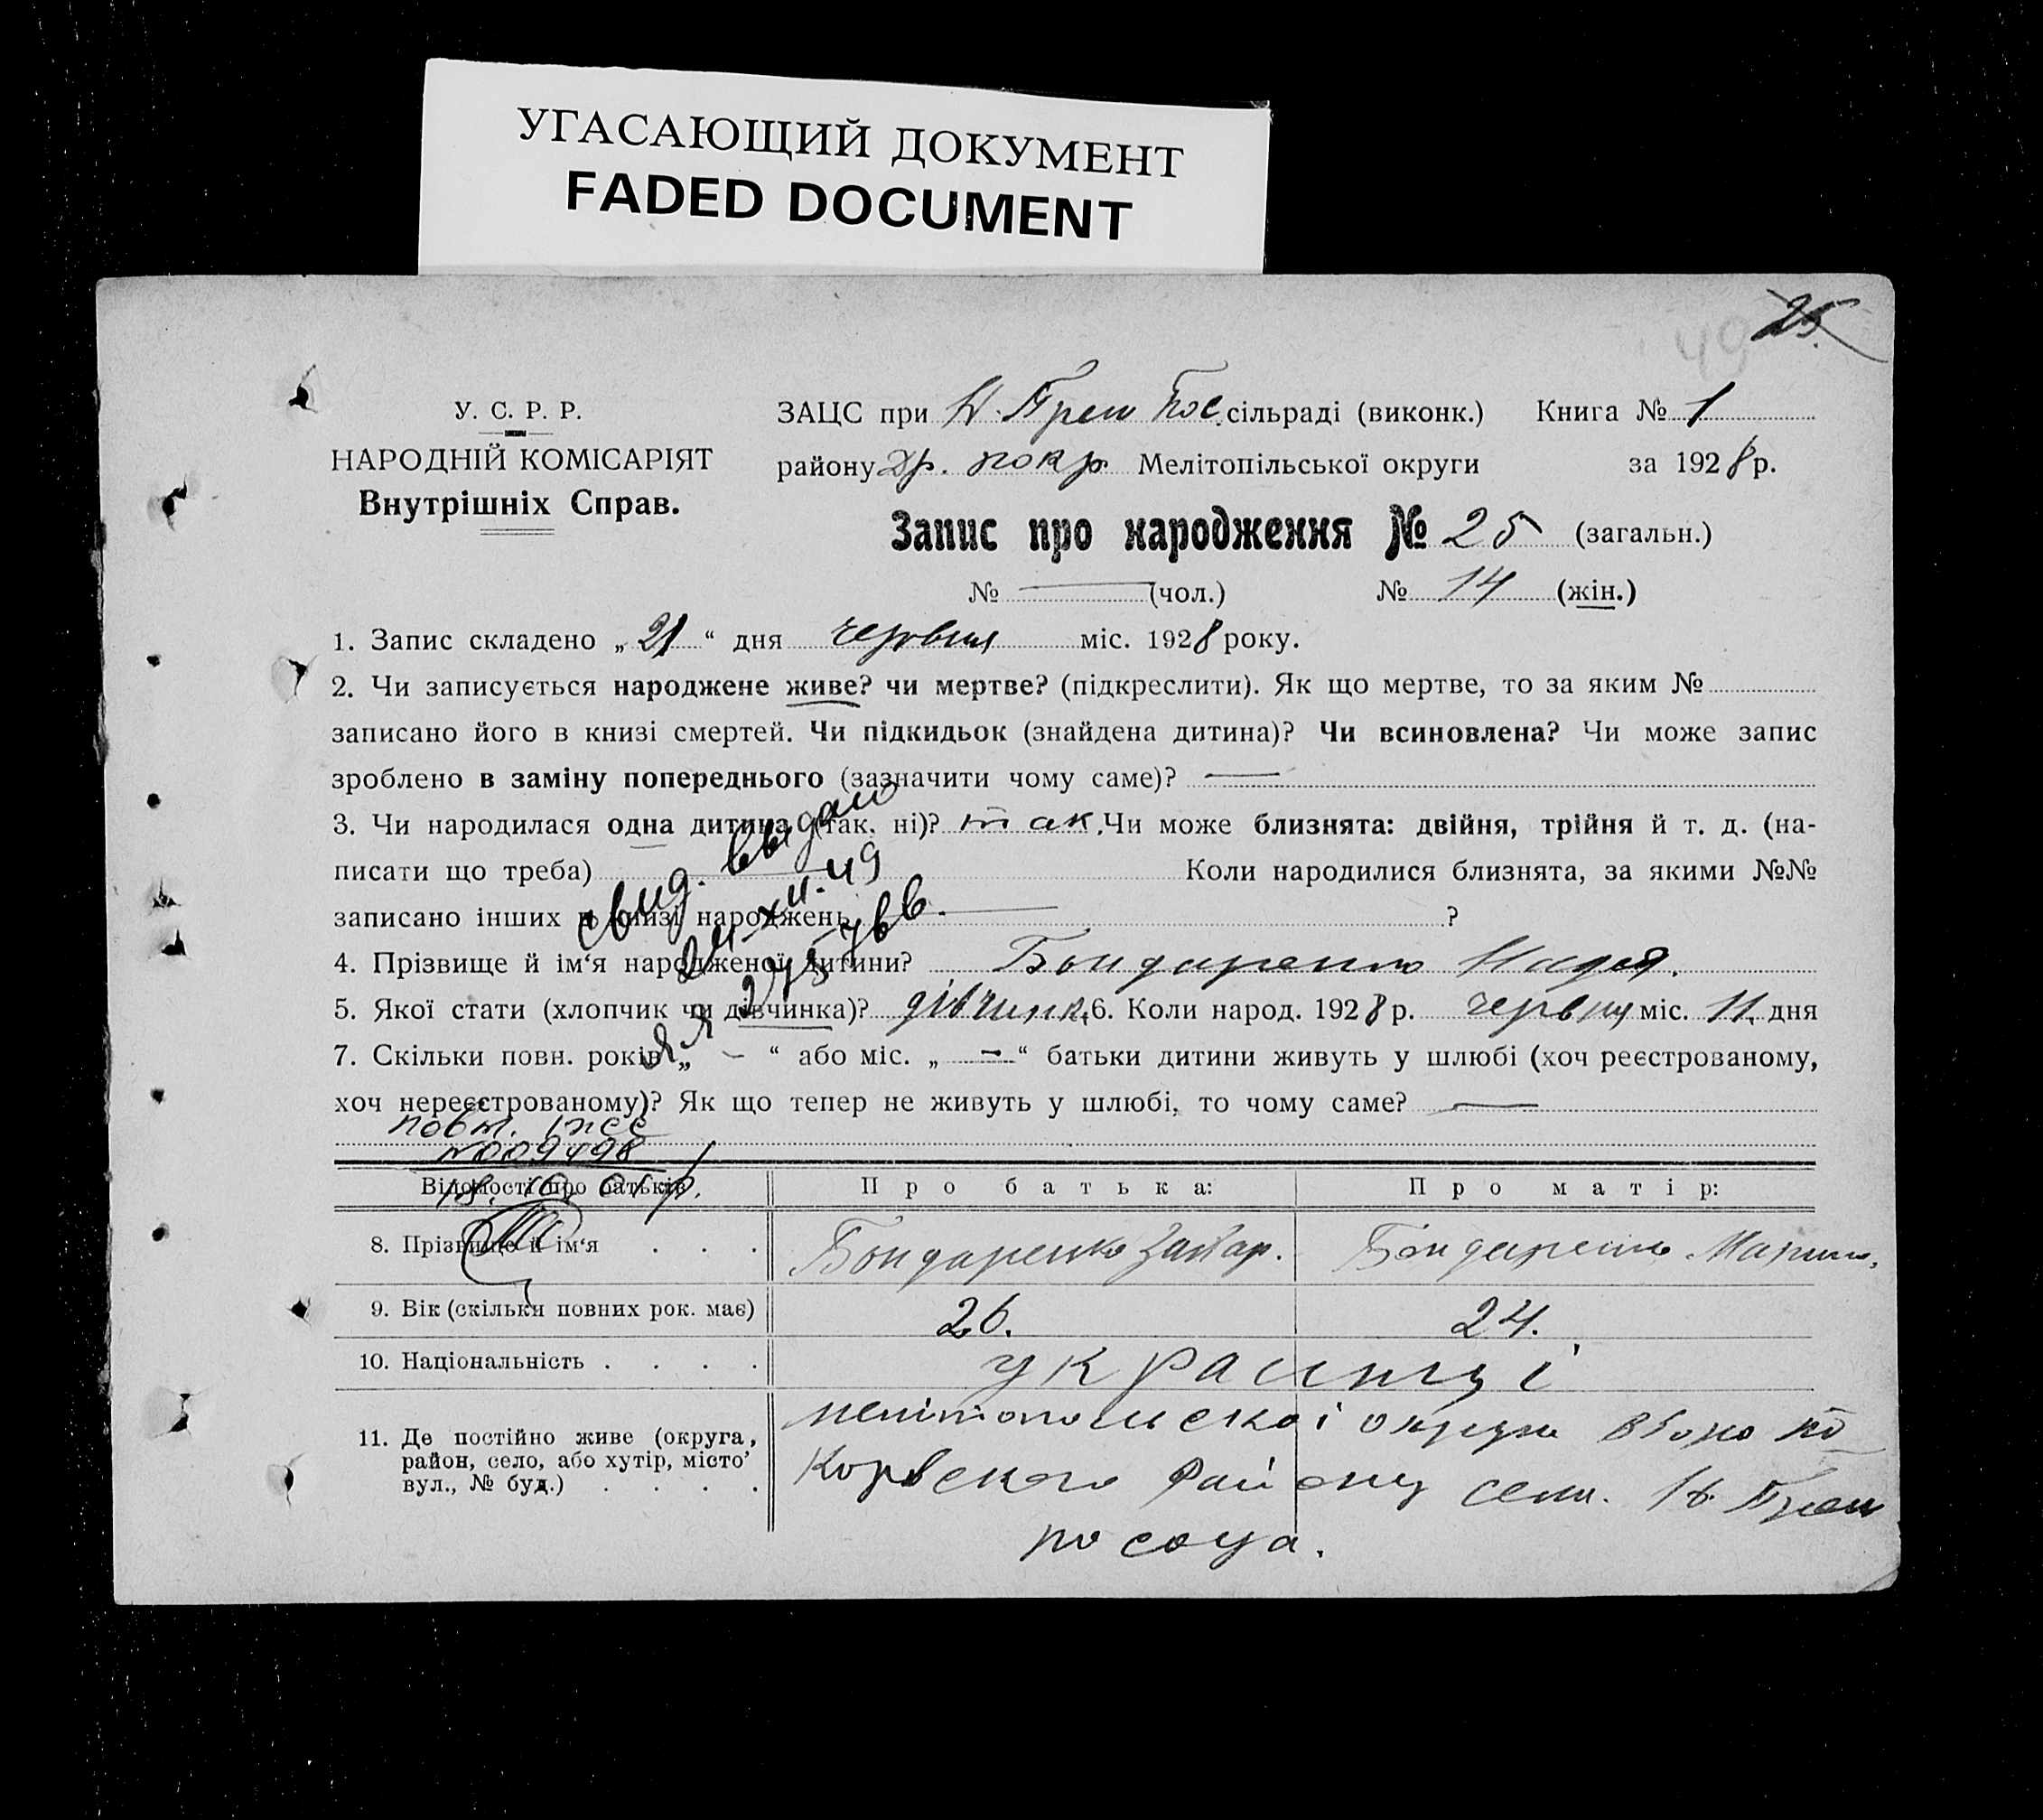 УГАСАЮЩИЙ ДОКУМЕНТ
FADED DOCUMENT
25
49
У. С. Р. Р.
НАРОДНІЙ КОМІСАРІЯТ
Внутрішніх Справ.
ЗАЦС при Н. Трем Пос. сільраді (виконк.) Книга № 1
району покр. Мелітопільської округи за 1928 р.
Запис про народження № 25 (загальн.)
№ — (чол.) № 14 (жін.)
1. Запис складено „ 21 “ дня червня міс. 1928 року.
2. Чи записується народжене живе? чи мертве? (підкреслити). Як що мертве, то за яким №
записано його в книзі смертей. Чи підкидьок (знайдена дитина)? Чи всиновлена? Чи може запис
зроблено в заміну попереднього (зазначити чому саме)? —
3. Чи народилася одна дитина (так, ні)? так. Чи може близнята: двійня, трійня й т. д. (на-
писати що треба) Коли народилися близнята, за якими №№
записано інших в книзі народжень — ?
свид. выдано
24-XII-49
4. Прізвище й ім‘я народженої дитини? Бондаренко Надя.
5. Якої стати (хлопчик чи дівчинка)? дівчинка 6. Коли народ. 1928 р. червня міс. 11 дня
7. Скільки повн. років „ – “ або міс. „ – “ батьки дитини живуть у шлюбі (хоч реєстрованому,
хоч нереєстрованому)? Як що тепер не живуть у шлюбі, то чому саме? —
повт.
№009498
Відомості про батьків Про батька: Про матір:
8. Прізвище й ім‘я . . . Бондаренко Захар. Бондаренко Мария.
9. Вік (скільки повних рок. має) 26. 24.
10. Національність . . . . украинці
11. Де постійно живе (округа, район, село, або хутір, місто’ вул., № буд.) . . . . мелітопольскоі округи
Корвского району села. Н. Трем
посоца.